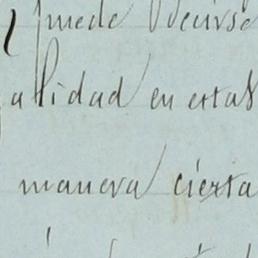 puede decirse
alidad en estas
manera cierta